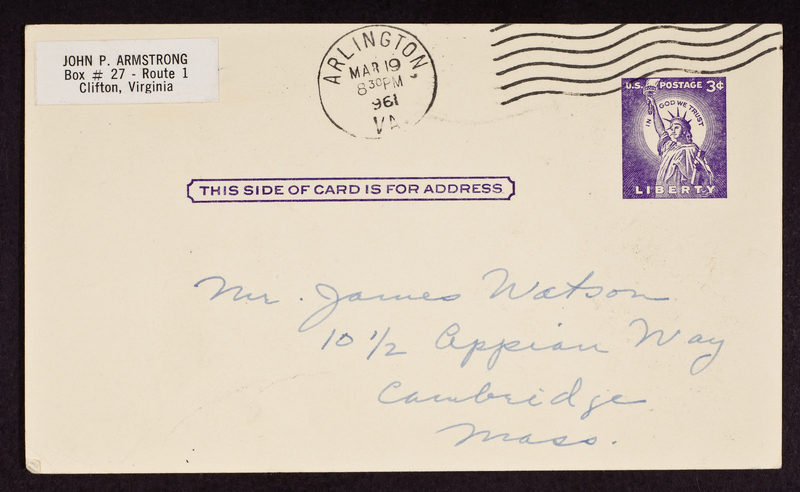 JOHN P. ARMSTRONG
Box # 27 - Route 1
Clifton, Virginia
ARLINGTON,
MAR 19
8 30 PM
961
VA.
U.S. POSTAGE 3¢
IN GOD WE TRUST
LIBERTY
THIS SIDE OF CARD IS FOR ADDRESS
Mr. James Watson
10 1/2 Appian Way
Cambridge
Mass.